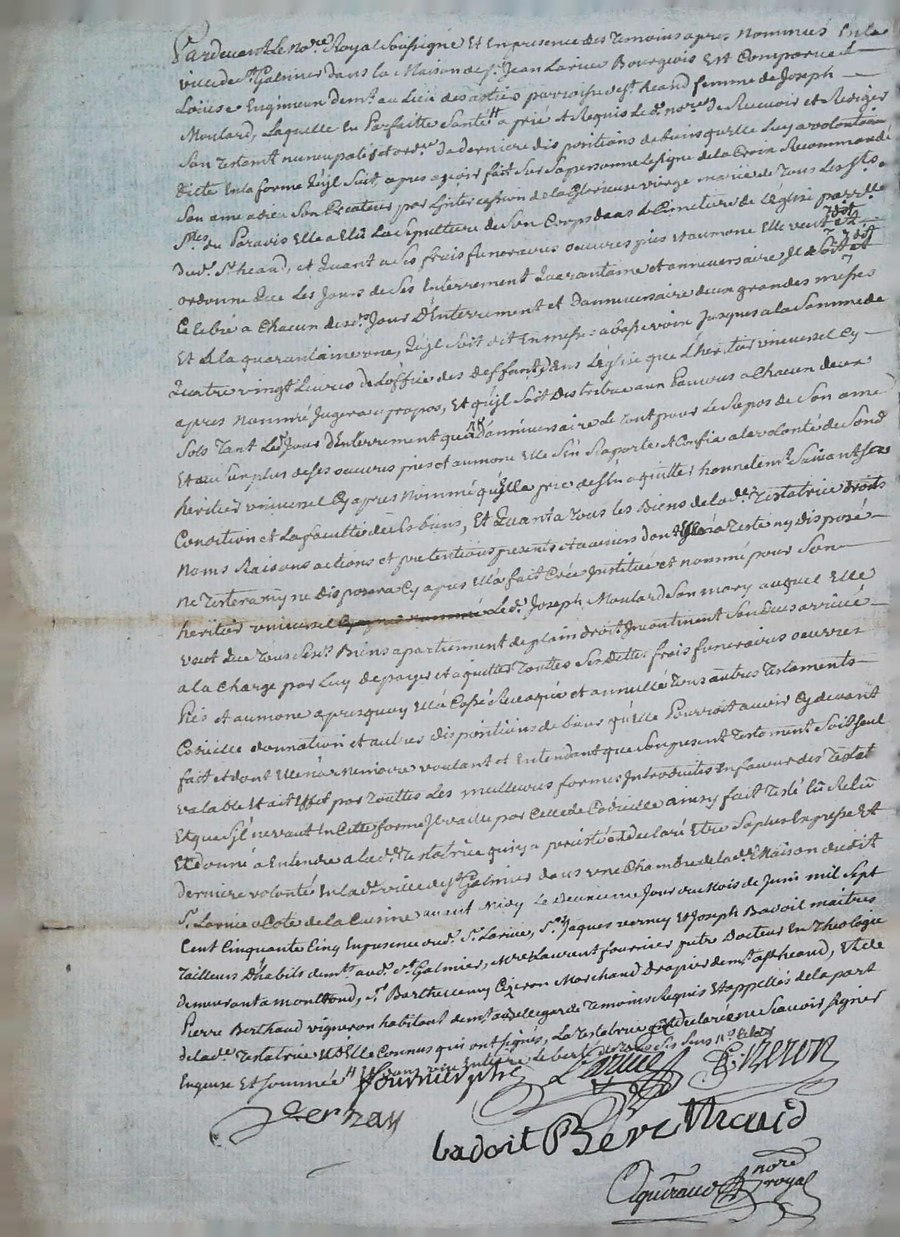 Pardevant le no.re Royal soussigné Et En presence des temoins apres nommés En la
ville de s.t Galmier dans la Maison de s.r Jean Larive Bourgeois Est Comparue
Loüise demt. au Lieu des parroisse de s.t heand femme de Joseph
Moulard, Laquelle En Parfaitte santé a prié et Requis le d. no.re de Recevoir et Rediger
son testamt. nuncupatif et ord.re de derniere dispositions de biens qu'elle luy a volontairemt.
dicté En la forme qu'jl suit, apres avoir fait sur sa personne le signe de la Croix Recommandé
son ame a dieu son Createur par L'intercession de la Glorieuse vierge marie de tous Les sts.
du Paravis Elle a Elu La sepulture de son Corps dans le Cimetiere de L'église
dud. s.t heand, et Quant a ses frais funeraires oeuvres pies et aumone Elle veut et
ordonne que Les Jours de ses Enterrement Quarantaine et anniversaire jl soit
Celebré a Chacun des Jour D'Enterrement et d'anniversaire deux grandes messes
Et a La quarantaine une, qu'jl soit dit En messes a basse voix jusques a la somme de
Quatre vingt Livres de L'office des deffants dans L'église que L'heritier universel Cy
apres nommé Jugera a propos, Et qu'jl soit distribué aux Pauvres a Chacun deux
sols tant Le Jour d'Enterrement que d'anniversaire Le tout pour Le Repos de son ame
Et au surplus de ses oeuvres pies et aumone Elle s'En Raporte et Confie a la volonté de sond.
heritier universel Cy apres nommé qu'Elle prie de s'En aquitter honnetemt. suivant sa
Condition et La faculté de ses biens, Et Quant a tous les Biens de lad. Testatrice droits
noms Raisons actions et pretentions presents et avenir dont Elle n'a testé ny disposé
ne testera ny ne disposera Cy apres Ell'a fait Créé Institué et nommé pour son
heritier universel led. Joseph Moulard son mary auquel Elle
veut que tous sesd. Biens apartiennent de plain droit Incontinent son deces arrivé
a la Charge par Luy de payer et aquitter toutes ses dettes frais funeraires oeuvres
Pies et aumone apres quoy Ell'a Cassé Revoqué et annullé tous autres testaments
Codicille donnation et autres dispositions de biens qu'elle Pourroit avoir Cy devant
fait et dont Elle n'a Memoire voulant et Entendant que son present testament soit seul
valable Et ait Effet par toutes Les meilleures formes Introduites En faveur des testat.
Et que s'jl ne vaut En Cette forme Jl vaille par Celle de Codicille ainsy fait testé lû Relû
Et donné a Entendre a lad. testatrice qui y a persisté et declaré Etre sa plus Expresse Et
derniere volonté En lad. ville de s.t Galmier dans une Chambre de la d. Maison dudit
s.r Larive a Coté de la Cuisine avant Midy Le deuxieme Jour du Mois de Juin mil sept
Cent Cinquante Cinq En presence dud. s.r Larive, s.r Jaques verney Et Joseph Badoit maitres
tailleurs d'habits demts. aud. s.t Galmier, M.re Laurent fournier petre Docteur En theologie
demeurant a montrond, s.r Barthelemy Marchand drapier demt. a s.t heand, Et de
Pierre Berthaud vigneron habitant demt. temoins Requis Et appellés de la part
de lad. testatrice Et d'Elle Connus qui ont signés, La testatrice a declaré ne scavoir signer
Enquise Et sommée
fournier ptre Larive
Vernay
badoit Berthaud
noré
royal